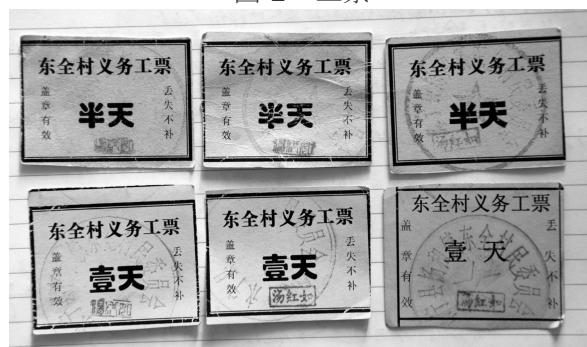 东全村义务工票
盖章有效
半天
丢失不补
东全村义务工票
盖章有效
半天
丢失不补
东全村义务工票
盖章有效
半天
丢失不补
汤红如
东全村义务工票
盖章有效
壹天
丢失不补
东全村义务工票
盖章有效
壹天
丢失不补
汤红如
东全村义务工票
盖章有效
壹天
丢失不补
东全村民委员会
汤红如